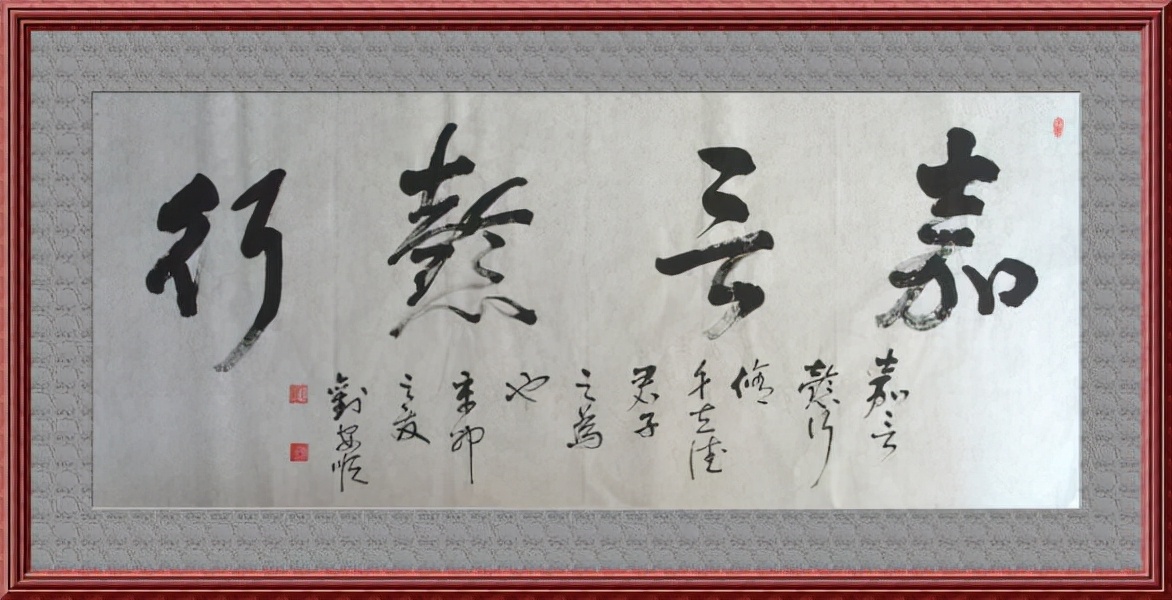 嘉言懿行
嘉言
懿行
修
立德
君子
之為
也
辛卯
之夏
劉安順